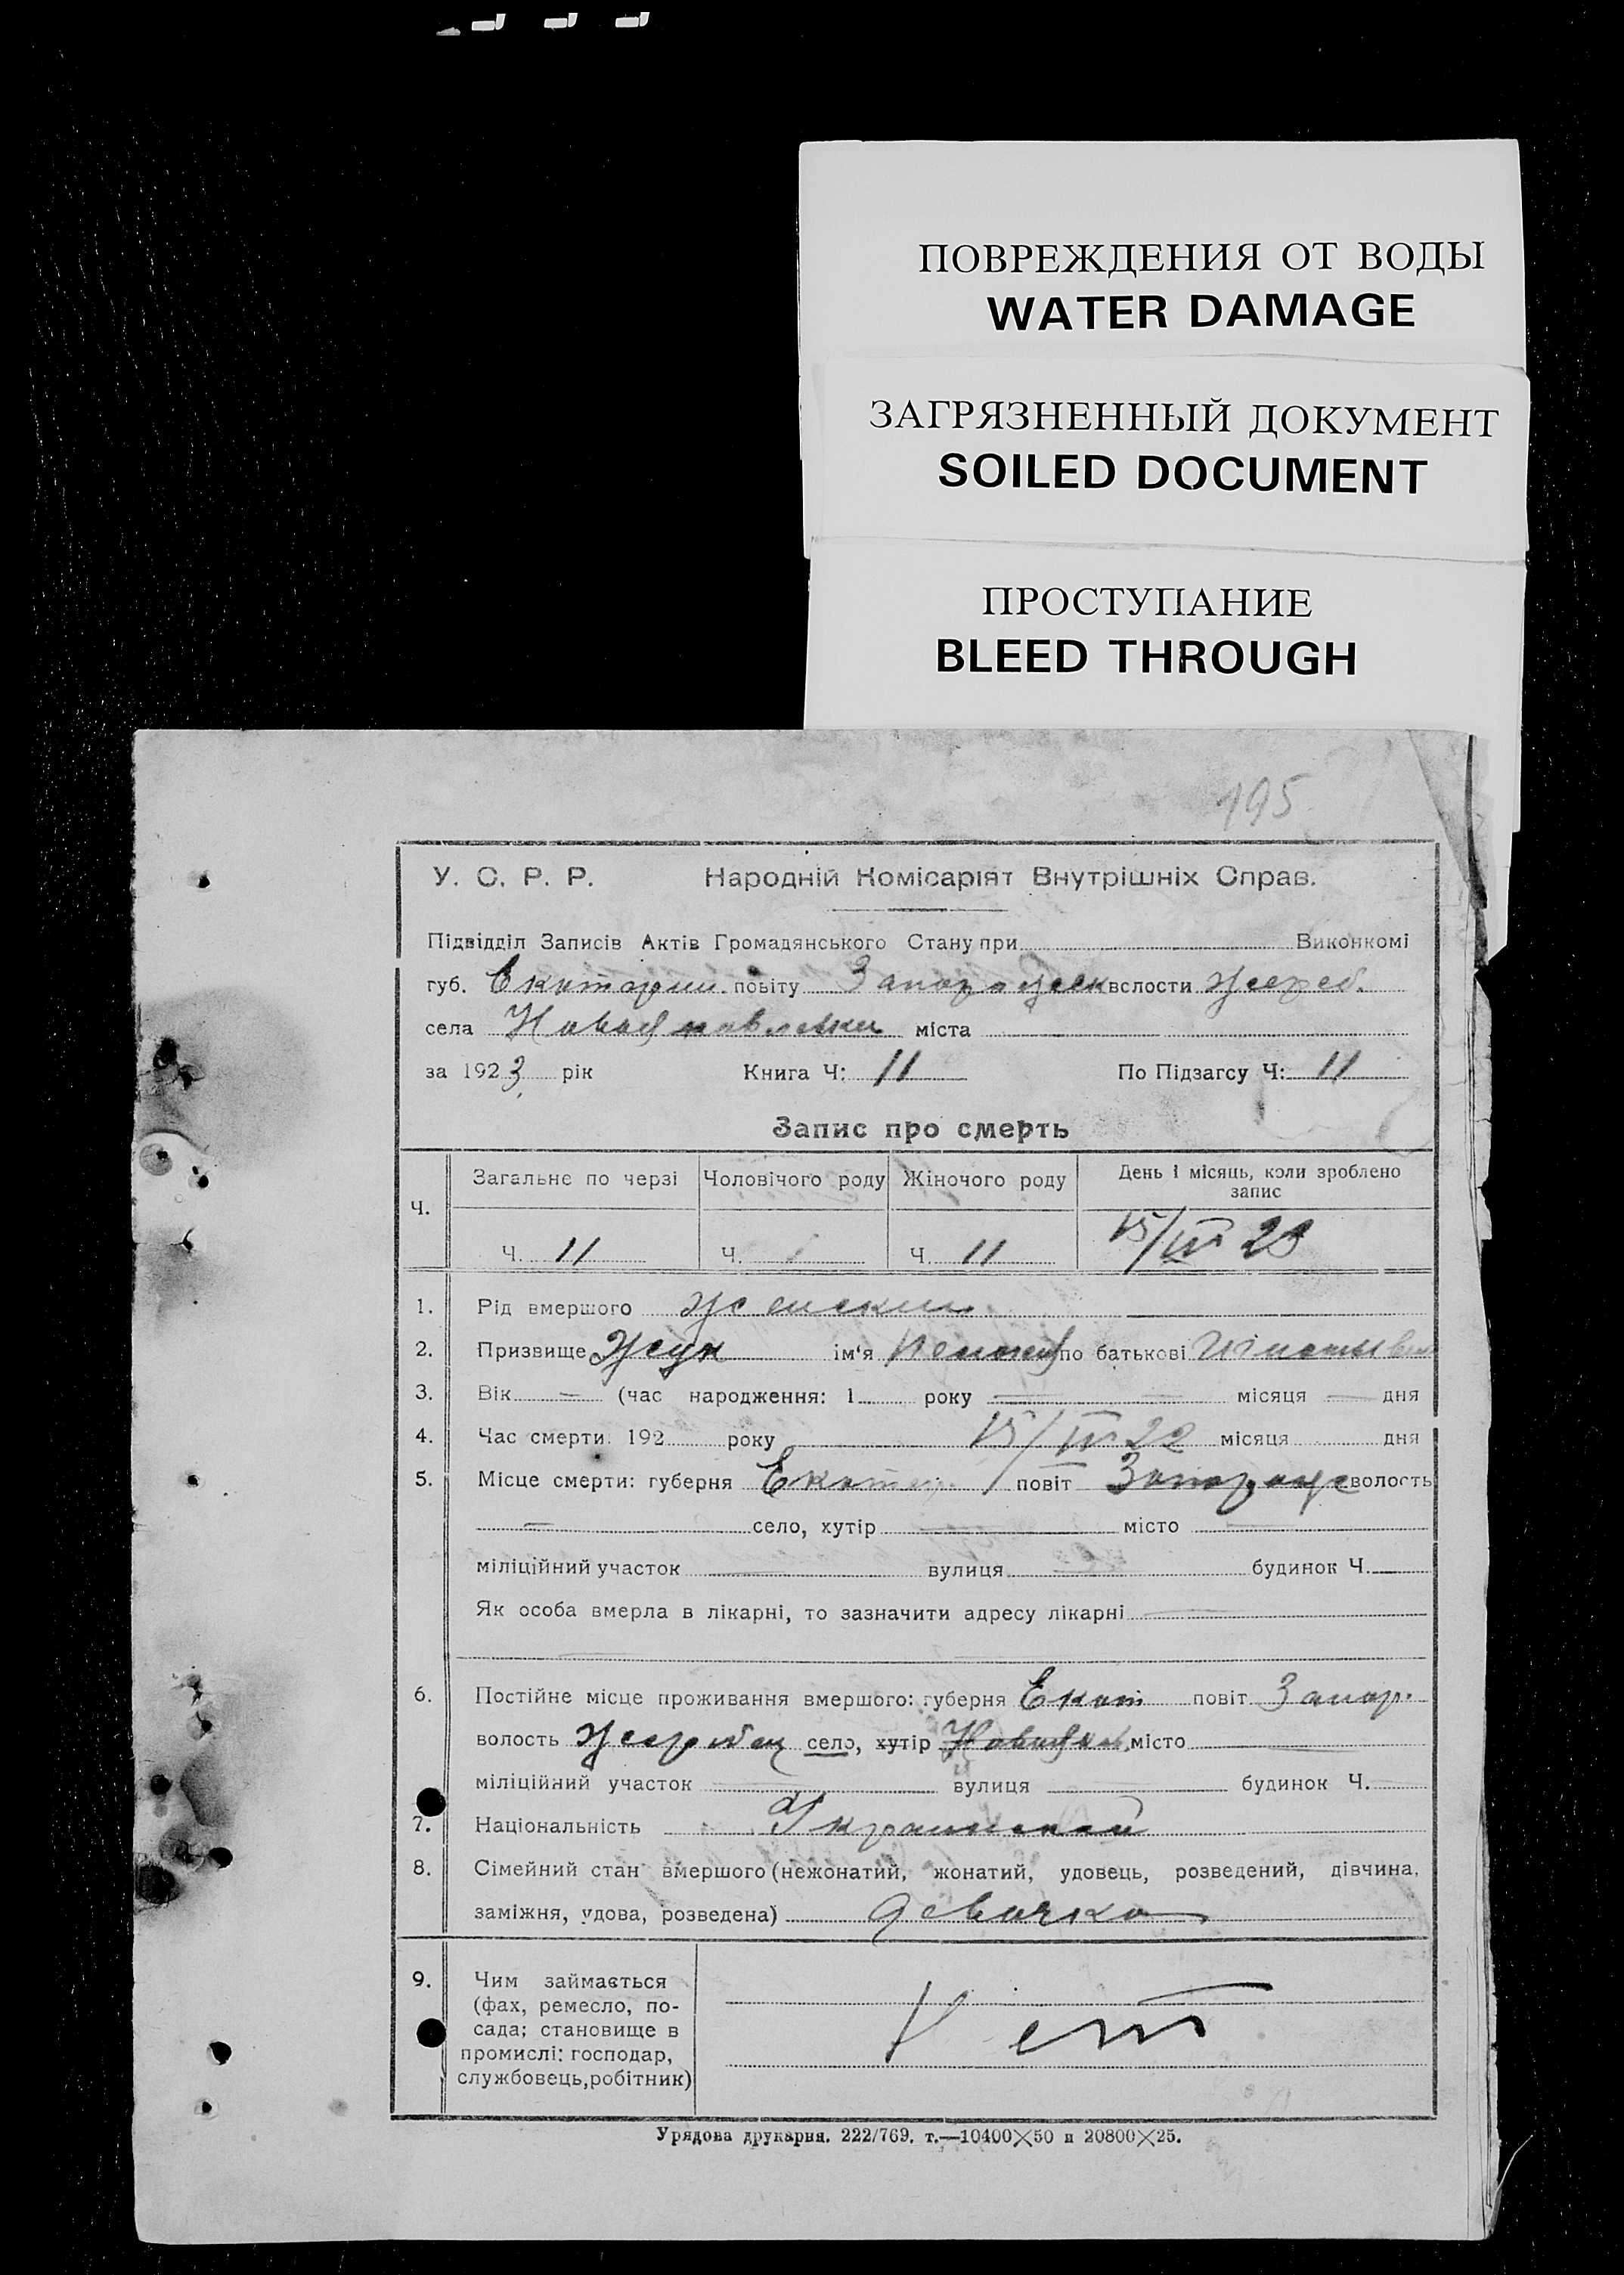 ПОВРЕЖДЕНИЯ ОТ ВОДЫ
WATER DAMAGE
ЗАГРЯЗНЕННЫЙ ДОКУМЕНТ
SOILED DOCUMENT
ПРОСТУПАНИЕ
BLEED THROUGH
195
У. С. Р. Р. Народній Комісаріят Внутрішніх Справ.
Підвідділ Записів Актів Громадянського Стану при Виконкомі
губ. повіту вслости Жереб.
села міста
за 1923 рік Книга Ч: 11 По Підзагсу Ч: 11
Запис про смерть
Ч. Загальне по черзі Чоловічого роду Жіночого роду День і місяць, коли зроблено запис
Ч. 11 Ч. Ч. 11 15/IV 23
1. Рід вмершого Женский
2. Призвище Жук ім'я по батькові
3. Вік — (час народження: 1 року — місяця — дня
4. Час смерти: 192 року 15/IV 22 місяця дня
5. Місце смерти: губерня Екатер. повіт волость
— село, хутір — місто —
міліційний участок — вулиця — будинок Ч. —
Як особа вмерла в лікарні, то зазначити адресу лікарні —
6. Постійне місце проживання вмершого: губерня Екат повіт Запор.
волость Жеребец село, хутір місто —
міліційний участок — вулиця — будинок Ч. —
7. Національність
8. Сімейний стан вмершого (нежонатий, жонатий, удовець, розведений, дівчина,
заміжня, удова, розведена) девочка
9. Чим займається
(фах, ремесло, по-
сада; становище в
промислі: господар,
службовець, робітник)
Нет
Урядова друкарня. 222/769. т.—10400×50 и 20800×25.